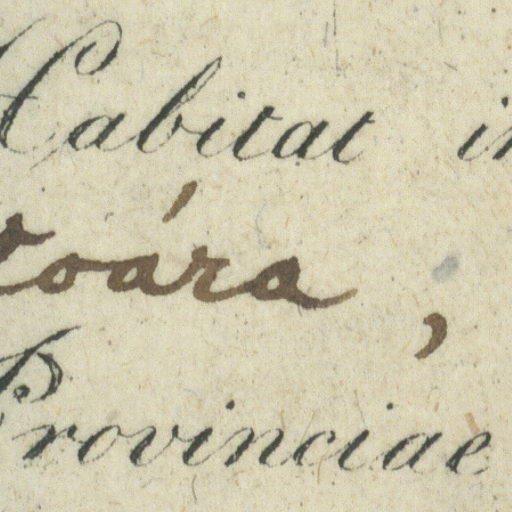 Habitat in
oára,
Provinciae